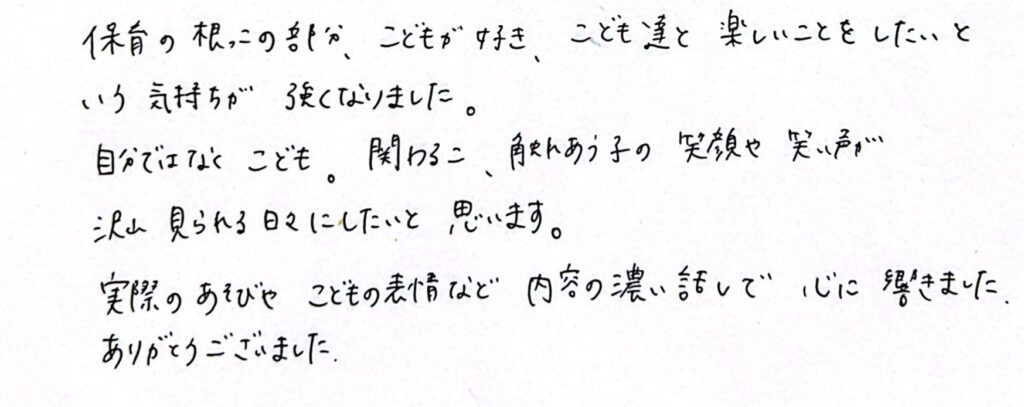 保育の根っこの部分、こどもが好き、こども達と楽しいことをしたいと
いう気持ちが強くなりました。
自分ではなくこども。関わるこ、触れあう子の笑顔や笑い声が
沢山見られる日々にしたいと思います。
実際のあそびや こどもの表情など 内容の濃い話しで 心に響きました.
ありがとうございました.